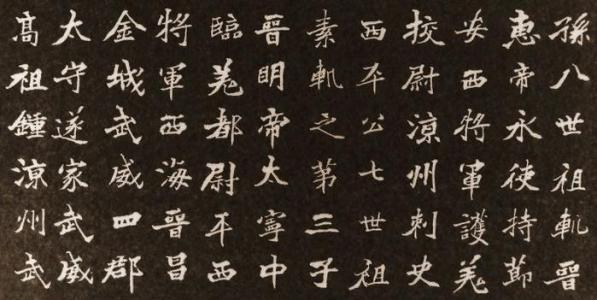 孫八世祖軌晉
惠帝永使持節
安西將軍護羌
挍尉涼州刺史
西平公七世祖
素軌之第三子
晉明帝太寧中
臨羌都尉平西
將軍西海晉昌
金城武威四郡
太守遂家武威
高祖鍾涼州武